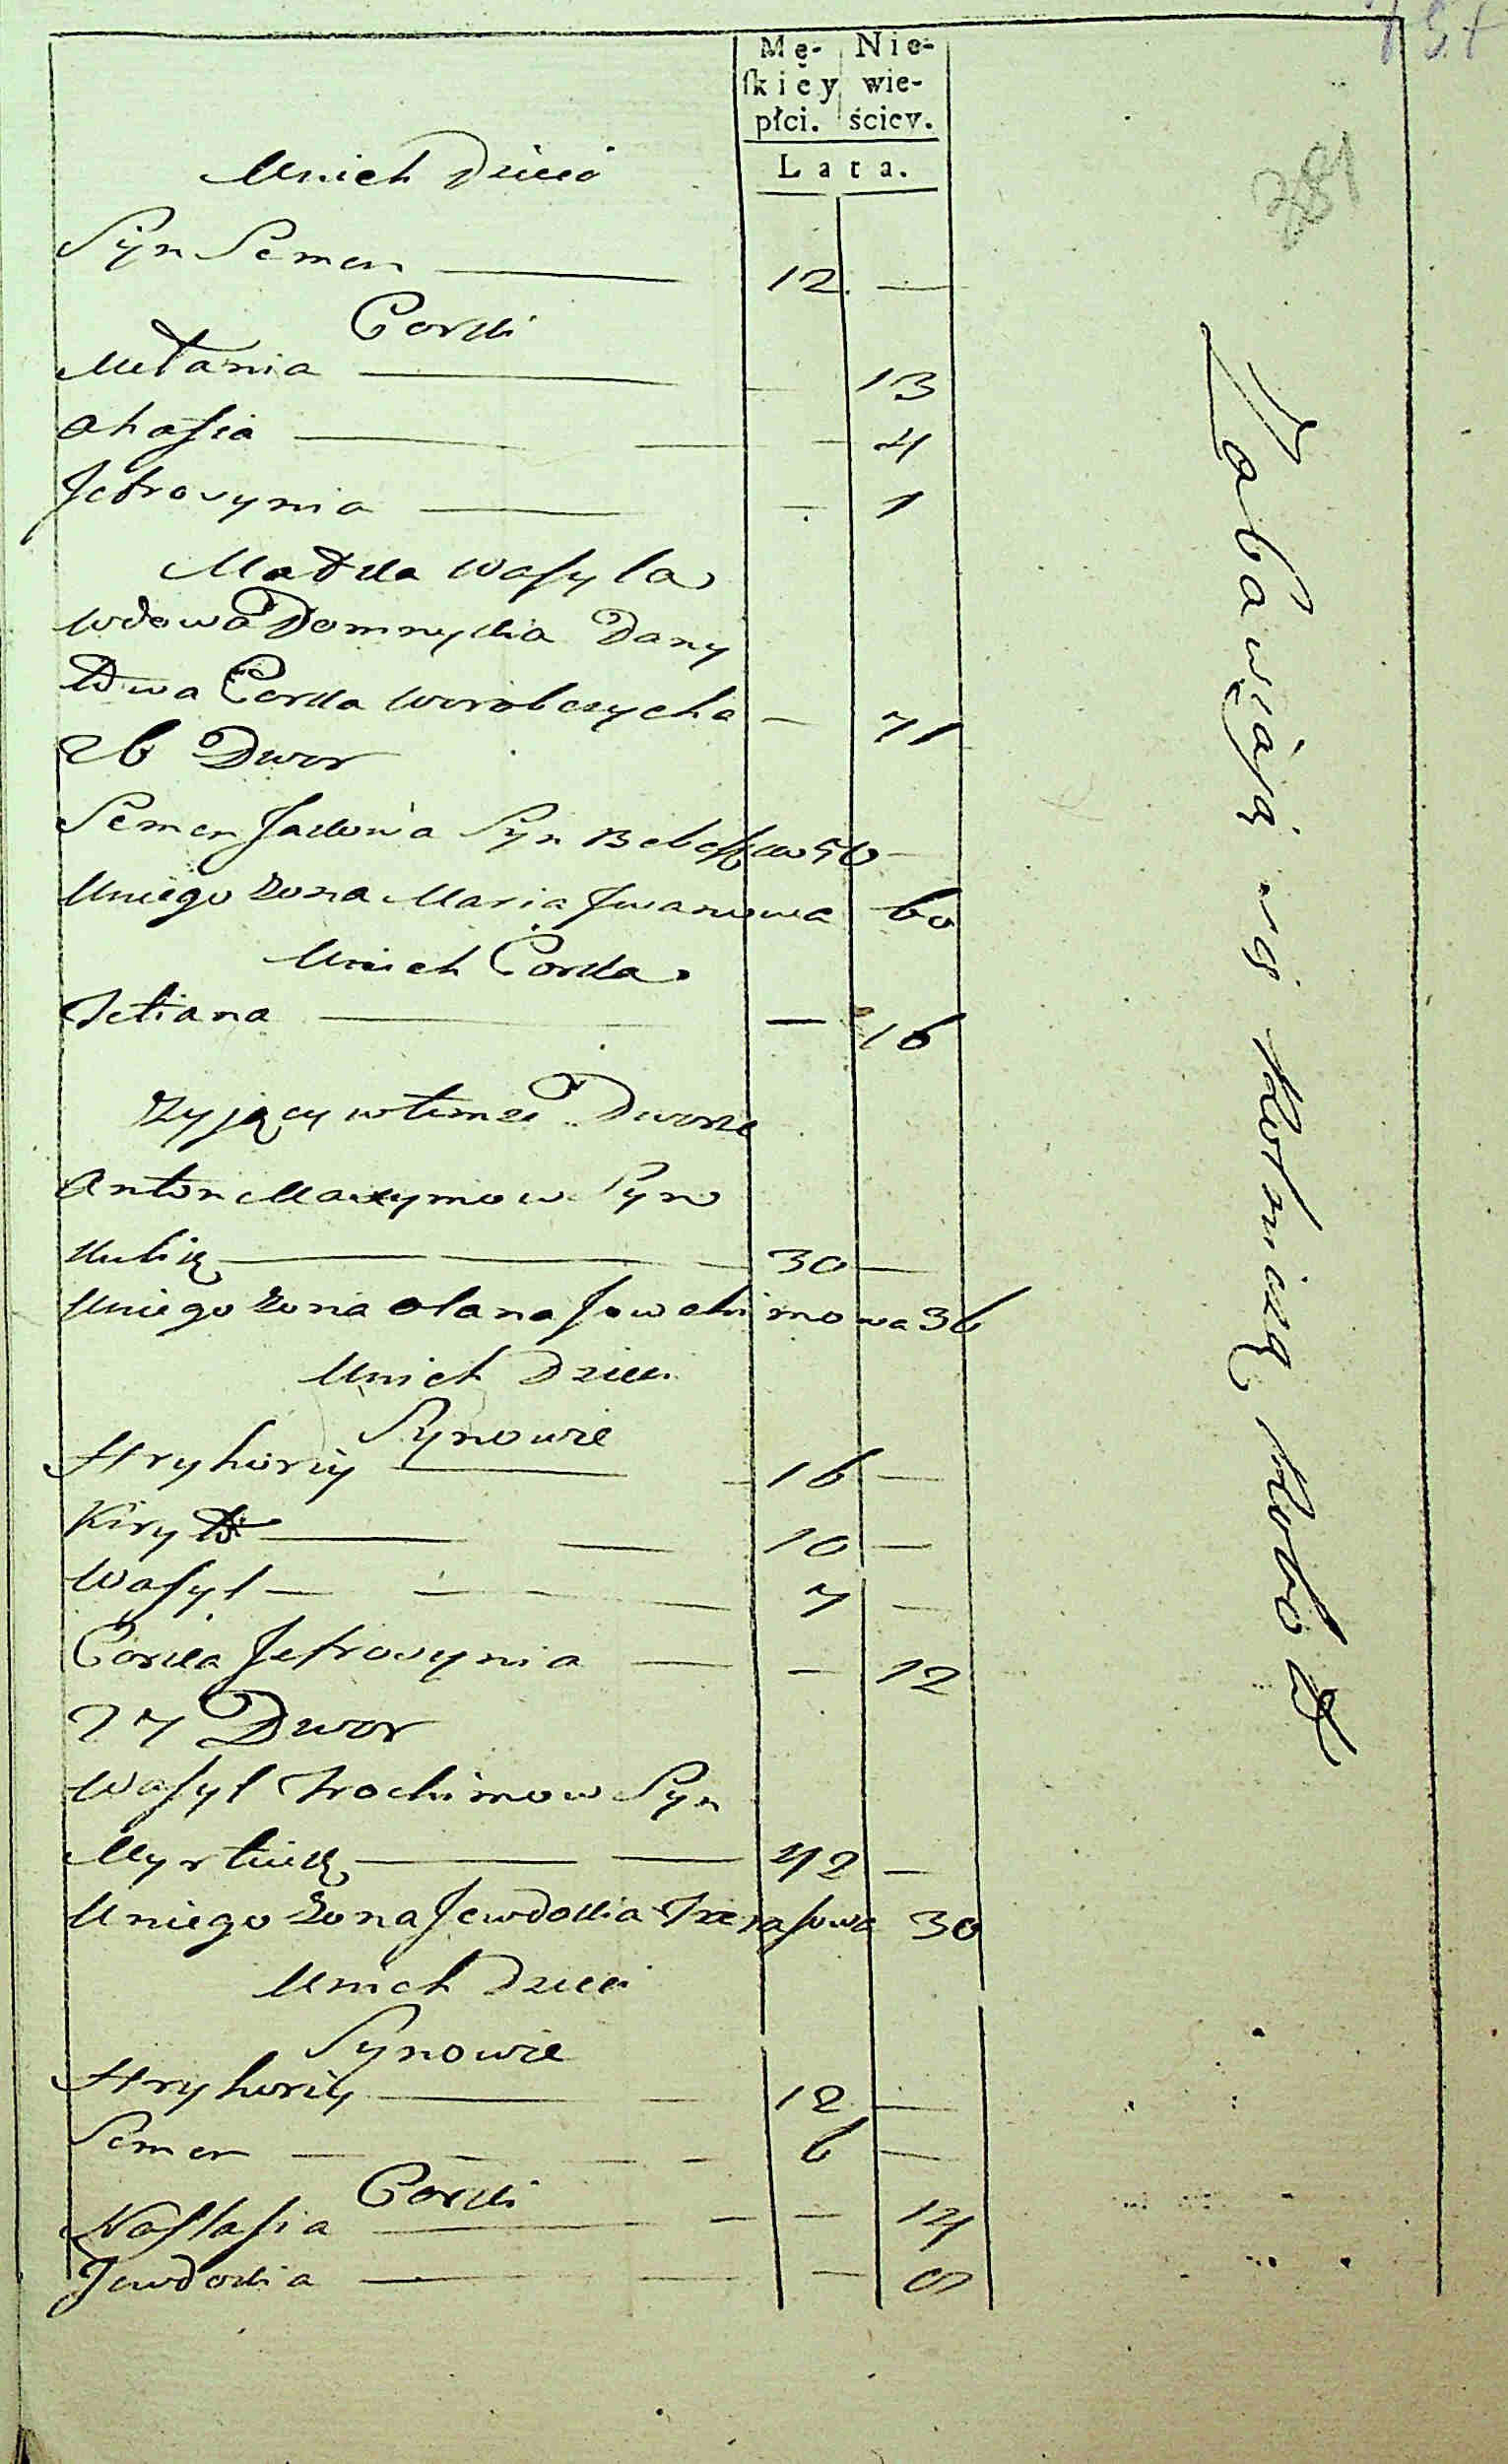 Mę- Nie-
skiéy wie-
płci. ściey.
Lata.
381
Unich Dzieci
Syn Semen — 12 —
Corki
Mełania — — 13
Ahafia — — 4
Jefrosynia — — 1
Matka Wasyla
Wdowa Domnykia Dany
łowa Corka Worobczycha — 71
26 Dwor
Semen Jakowa Syn 56 —
Uniego Zona Maria Jwanowa 60
Unich Corka
Tetiana — — 16
Zyjący w temze Dworze
Anton Maxymow Syn
Kulik — 30 —
Uniego Zona Olana Jowchimowa 36
Unich Dzieci
Synowie
Hryhoriy — 16 —
Kiryło — 10 —
Wasyl — 7 —
Corka Jefrosynia — — 12
27 Dwor
Wasyl Trochimow Syn
— 42 —
Uniego Zona Jewdokia Tarasowa 30
Unich Dzieci
Synowie
Hryhoriy — 12 —
Semen — 6 —
Corki
Nastasia — — 14
Jewdokia — —
Zabawiają się Rolniczą Robotą